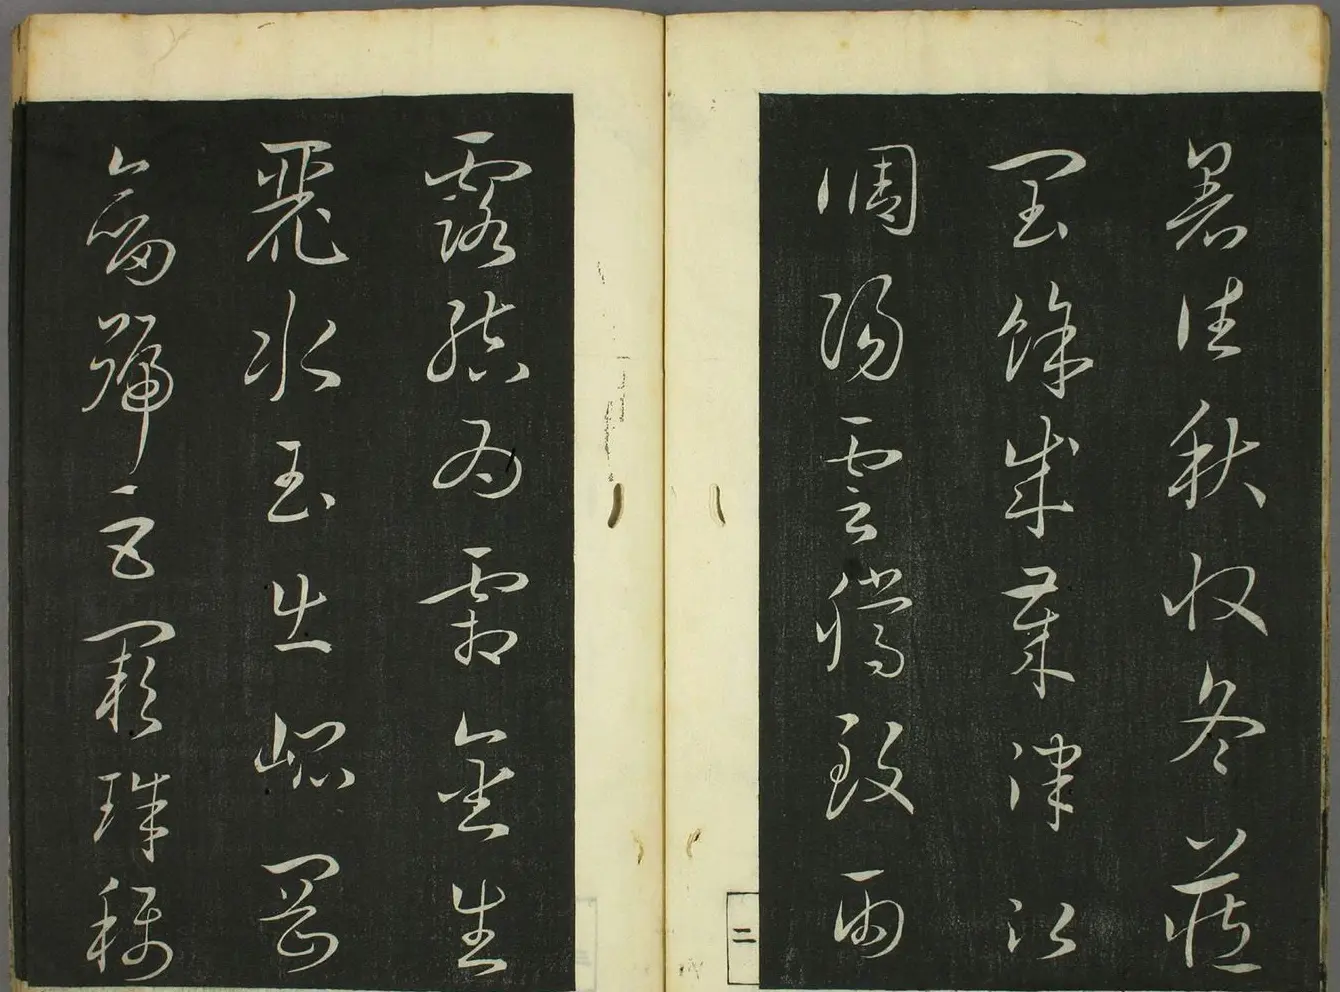 暑往秋收冬藏
閏餘成歲律呂
調陽雲騰致雨
二
露結為霜金生
麗水玉出崑岡
劍號巨闕珠稱